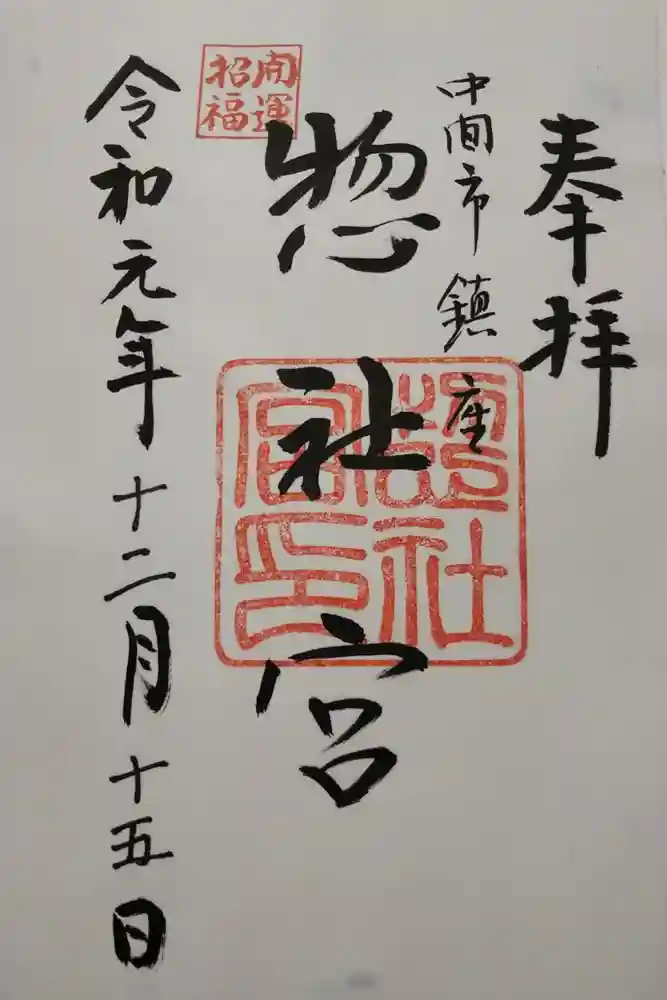 奉拝
中間市鎮座
惣社宮
開運
招福
惣社
宮印
令和元年十二月十五日